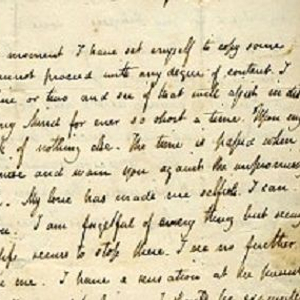 moment I have set myself to copy some
cannot proceed with any degree of content. I
line or two and see if that will assist in dis
my Mind for ever so short a time. Upon my
k of nothing else. The time is passed when
advise and warn you against the unpromising
My love has made me selfish. I can
I am forgetful of every thing but seeing
Life seems to stop there. I see no further.
me. I have a sensation at the present
I should be exquisi